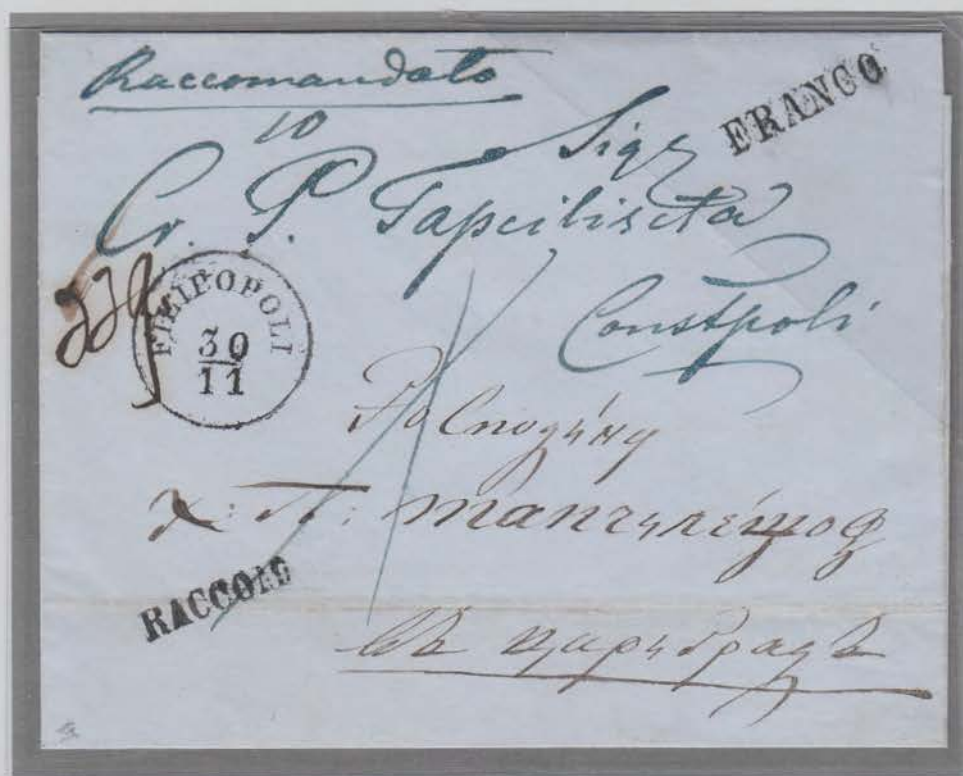 Raccomandato
FRANCO
10
Sigr
Cr. P. Tapciliscta
Constpoli
FILIPOPOLI
30
11
х: П: тапчилещоф
RACCOMD
въ цариградъ